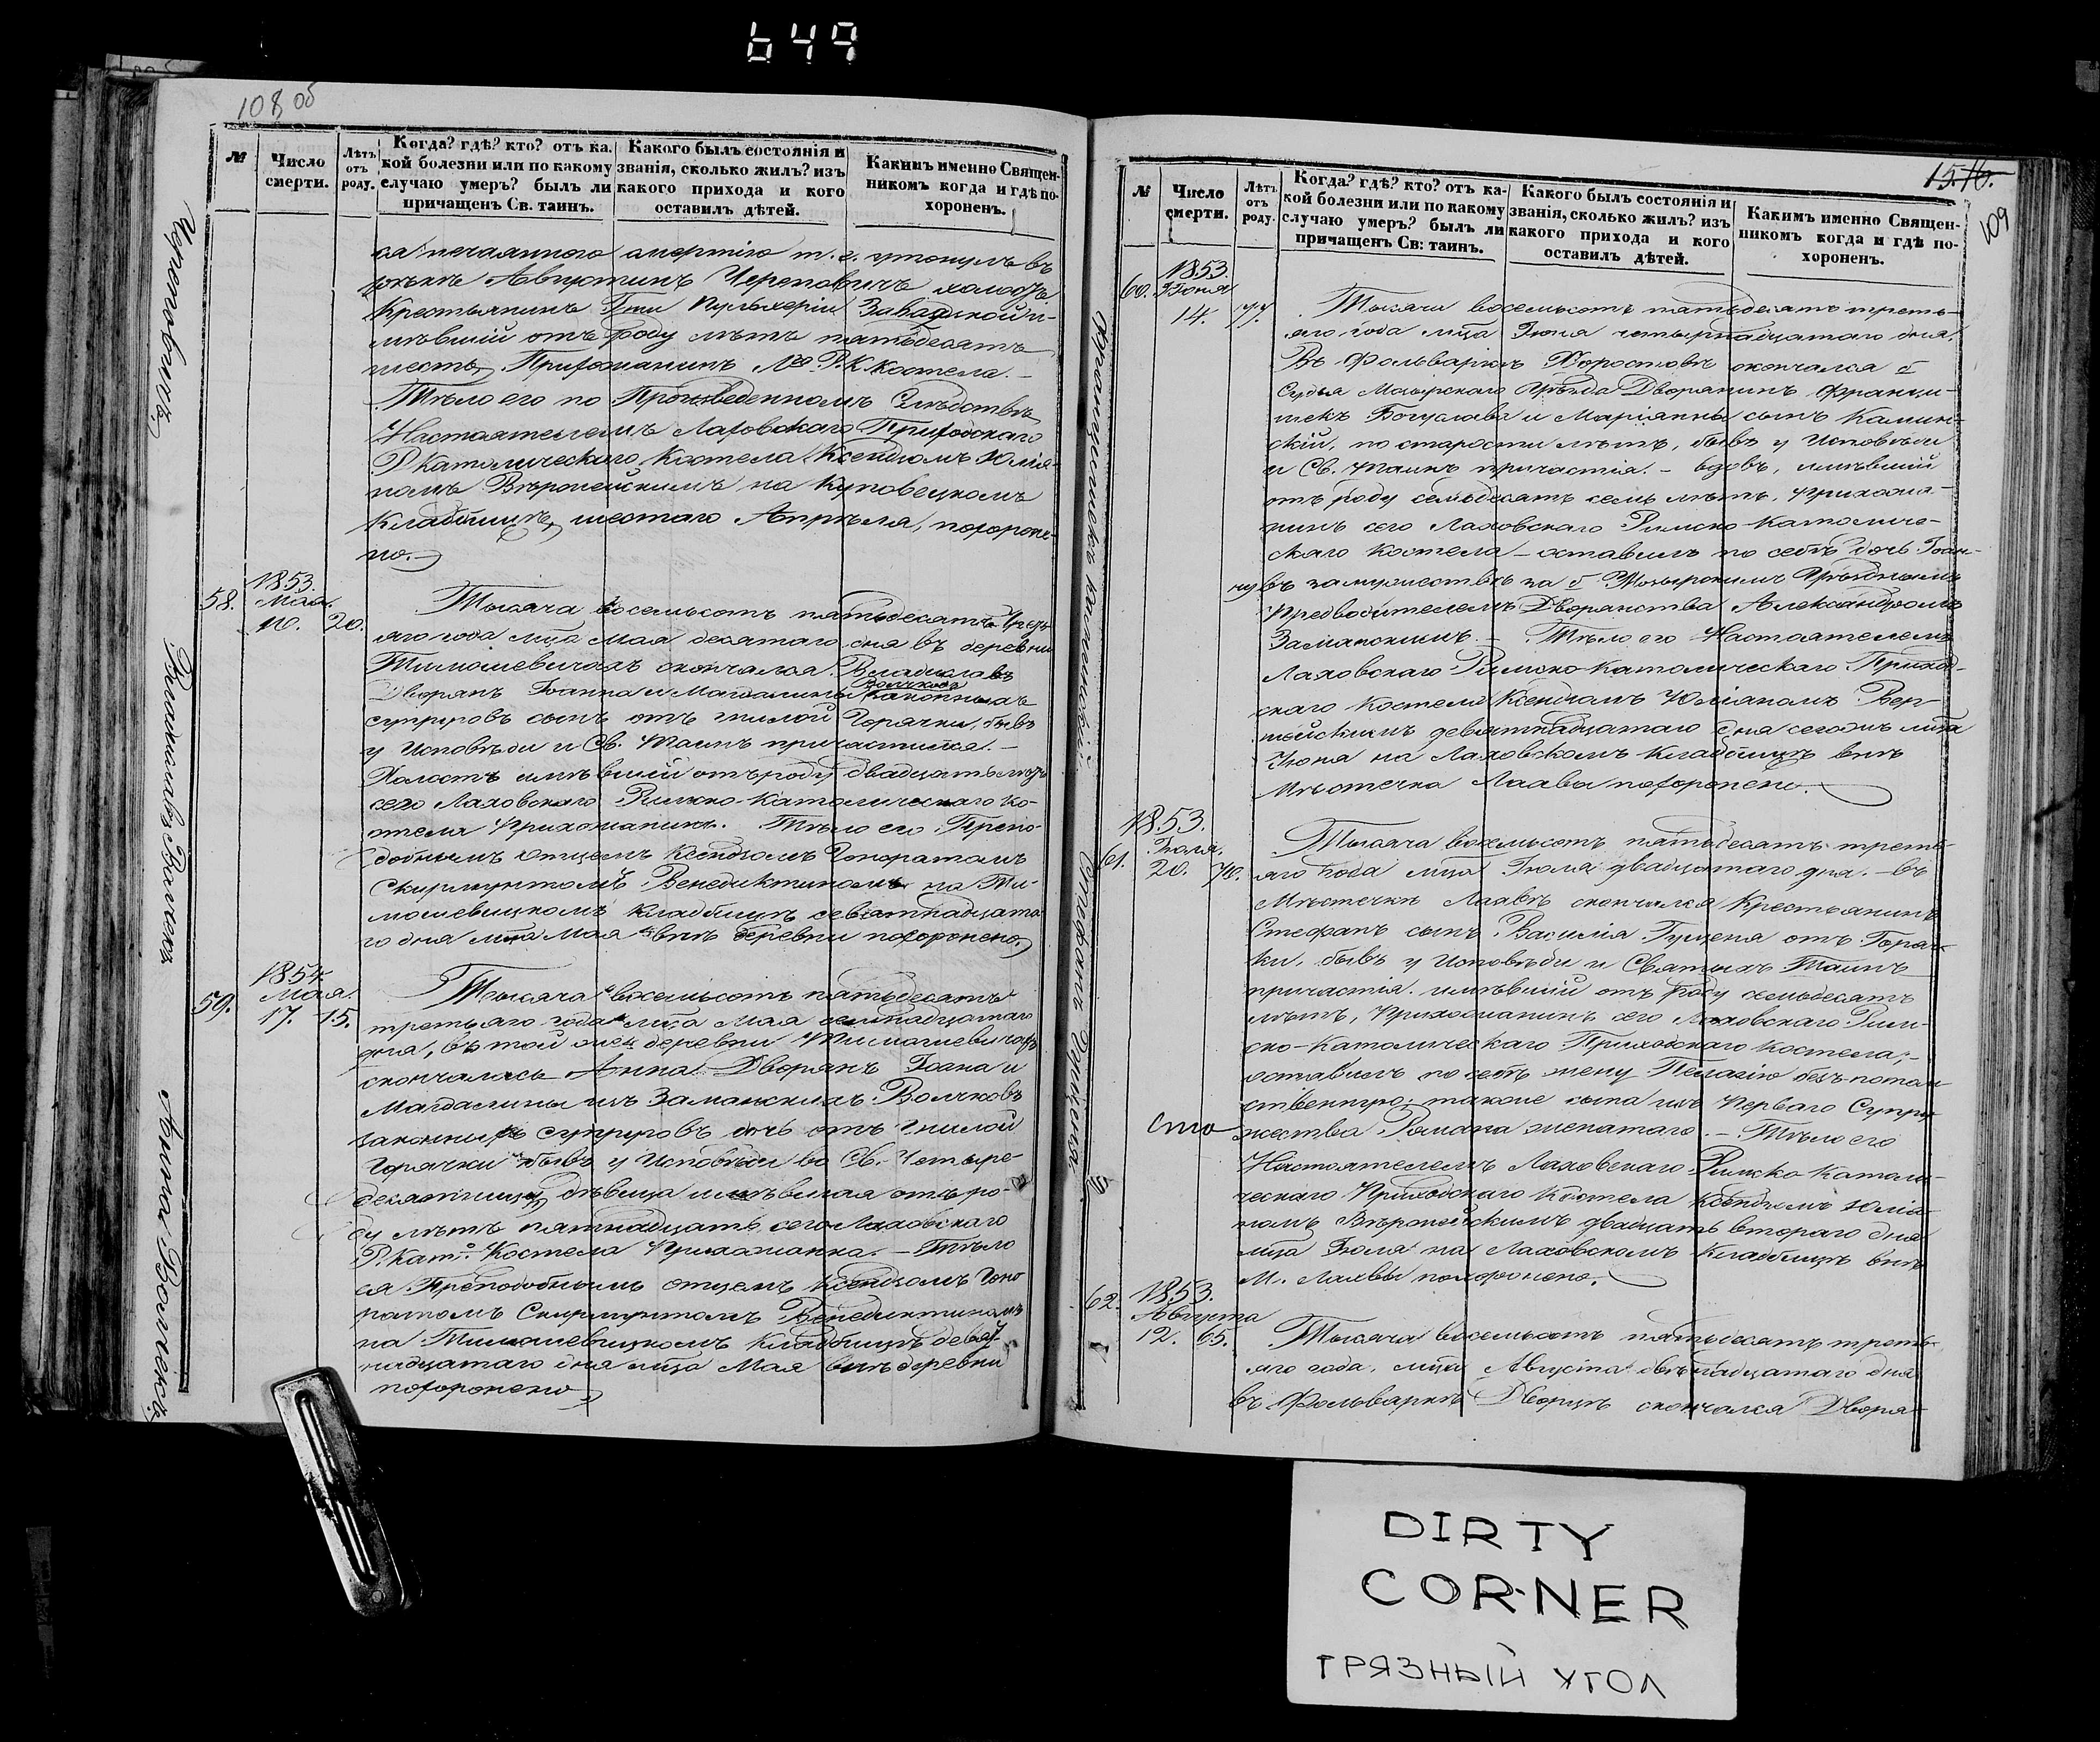 649
108 об
№
Число смерти.
Лѣтъ отъ роду.
Когда? гдѣ? кто? отъ ка-
кой болезни или по какому
случаю умеръ? былъ ли
причащенъ Св. таинъ.
Какого былъ состоянія и
званія, сколько жилъ? изъ
какого прихода и кого
оставилъ дѣтей.
Какимъ именно Священ-
никомъ когда и гдѣ по-
хороненъ.
Череповичъ
нечаянною смертію т. е. утонулъ въ
Августинъ Череповичъ холостъ
Крестьянинъ Г-жи Пульхеріи Завадской и-
мѣвшій отъ роду лѣтъ пятьдесятъ
шесть, Прихожанинъ Р. К. Костела. —
Тѣло его по Произведенномъ Слѣдствіи
Настоятелемъ Лаховскаго Приходскаго
Р. Католическаго Костела Ксендзомъ Юлія-
номъ Вѣропейскимъ на Куповецкомъ
Кладбищѣ, шестаго Апрѣля, похороне-
но. —
58.
1853.
Мая.
10. 20.
Владиславъ Волчекъ
Тысяча восемьсотъ пятьдесятъ треть-
яго года м-ца Мая десятаго дня въ деревни
Тимошевичахъ скончался Владиславъ
Дворянъ Іоанна и Магдалины Волчковъ законныхъ
супруговъ сынъ отъ гнилой Горячки, бывъ
у Исповѣди и Св. Таинъ причастился. —
Холостъ имѣвшій отъ роду двадцать лѣтъ
сего Лаховскаго Римско-Католическаго Ко-
стела Прихожанинъ. Тѣло его Препо-
добнымъ Отцемъ Ксендзомъ Гоноратомъ
Скирмунтомъ Бенедиктиномъ на Ти-
мошевицкомъ кладбищѣ девятнадцата-
го дня м-ца Мая внѣ деревни похоронено.
59.
1854.
Мая.
17. 15.
Анна Волчекъ
Тысяча восемьсотъ пятьдесятъ
третьяго года м-ца Мая семнадцатаго
дня, въ той же деревни Тимошевичахъ
скончалась Анна Дворянъ Іоана и
Магдалины изъ Заманскихъ Волчковъ
законныхъ супруговъ дочь отъ гнилой
Горячки бывъ у Исповѣди во Св. Четыре-
десятницу, дѣвица имѣвшая отъ ро-
ду лѣтъ пятнадцать сего Лаховскаго
Р. Кат-о. Костела Прихожанка. — Тѣло
ея Преподобнымъ отцемъ Ксендзомъ Гоно-
ратомъ Скирмунтомъ Бенедиктиномъ
на Тимошевицкомъ Кладбищѣ девят-
надцатаго дня м-ца Мая внѣ деревни
похоронено
15.16.
109
№
Число смерти.
Лѣтъ отъ роду.
Когда? гдѣ? кто? отъ ка-
кой болезни или по какому
случаю умеръ? былъ ли
причащенъ Св: таинъ.
Какого былъ состоянія и
званія, сколько жилъ? изъ
какого прихода и кого
оставилъ дѣтей.
Какимъ именно Священ-
никомъ когда и гдѣ по-
хороненъ.
60.
1853.
Іюня
14. 77.
Францишекъ Каминскій
Тысяча восемьсотъ пятьдесятъ треть-
яго года м-ца Іюня четырнадцатаго дня,
Въ Фольваркѣ Хоростовѣ скончался б.
Судья Мозырскаго Уѣзда Дворянинъ Франци-
шекъ Богуслава и Маріянны сынъ Камин-
скій, по старости лѣтъ, бывъ у Исповѣди
и Св. Таинъ причастія. — вдовъ, имѣвшій
отъ роду семьдесятъ семь лѣтъ, Прихожа-
нинъ сего Лаховскаго Римско-Католиче-
скаго Костела — оставилъ по себѣ дочь Іоан-
ну въ замужествѣ за б. Мозырскимъ Уѣзднымъ
Предводителемъ Дворянства Александромъ
Заманскимъ. — Тѣло его Настоятелемъ
Лаховскаго Римско-Католическаго Приход-
скаго Костела Ксендзомъ Юліаномъ Вер-
пейскимъ девятнадцатаго дня сегожъ м-ца
Іюня на Лаховскомъ Кладбищѣ внѣ
Мѣстечка Лахвы похоронено.
61.
1853.
Іюля.
20. 70.
Стефанъ Гущеня
Тысяча восемьсотъ пятьдесятъ треть-
яго года м-ца Іюля двадцатаго дня. — въ
Мѣстечкѣ Лахвѣ скончался Крестьянинъ
Стефанъ сынъ Василія Гущеня отъ Горяч-
ки, бывъ у Исповѣди и Святыхъ Таинъ
причастія. имѣвшій отъ роду семьдесятъ
лѣтъ, Прихожанинъ сего Лаховскаго Рим-
ско-Католическаго Приходскаго Костела, —
оставилъ по себѣ жену Пелагію безъ потом-
ственную; такоже сына изъ Перваго Супру-
жества Романа женатаго. — Тѣло его
Настоятелемъ Лаховскаго Римско Католи-
ческаго Приходскаго Костела Ксендзомъ Юлія-
номъ Вѣропейскимъ двадцать втораго дня
м-ца Іюля на Лаховскомъ Кладбищѣ внѣ
М. Лахвы похоронено.
62.
1853.
Августа
12. 65.
Тысяча восемьсотъ пятьдесятъ треть-
яго года, м-ца Августа двѣнадцатаго дня
въ Фольваркѣ Дворцѣ скончался Дворя-
DIRTY
CORNER
ГРЯЗНЫЙ УГОЛ